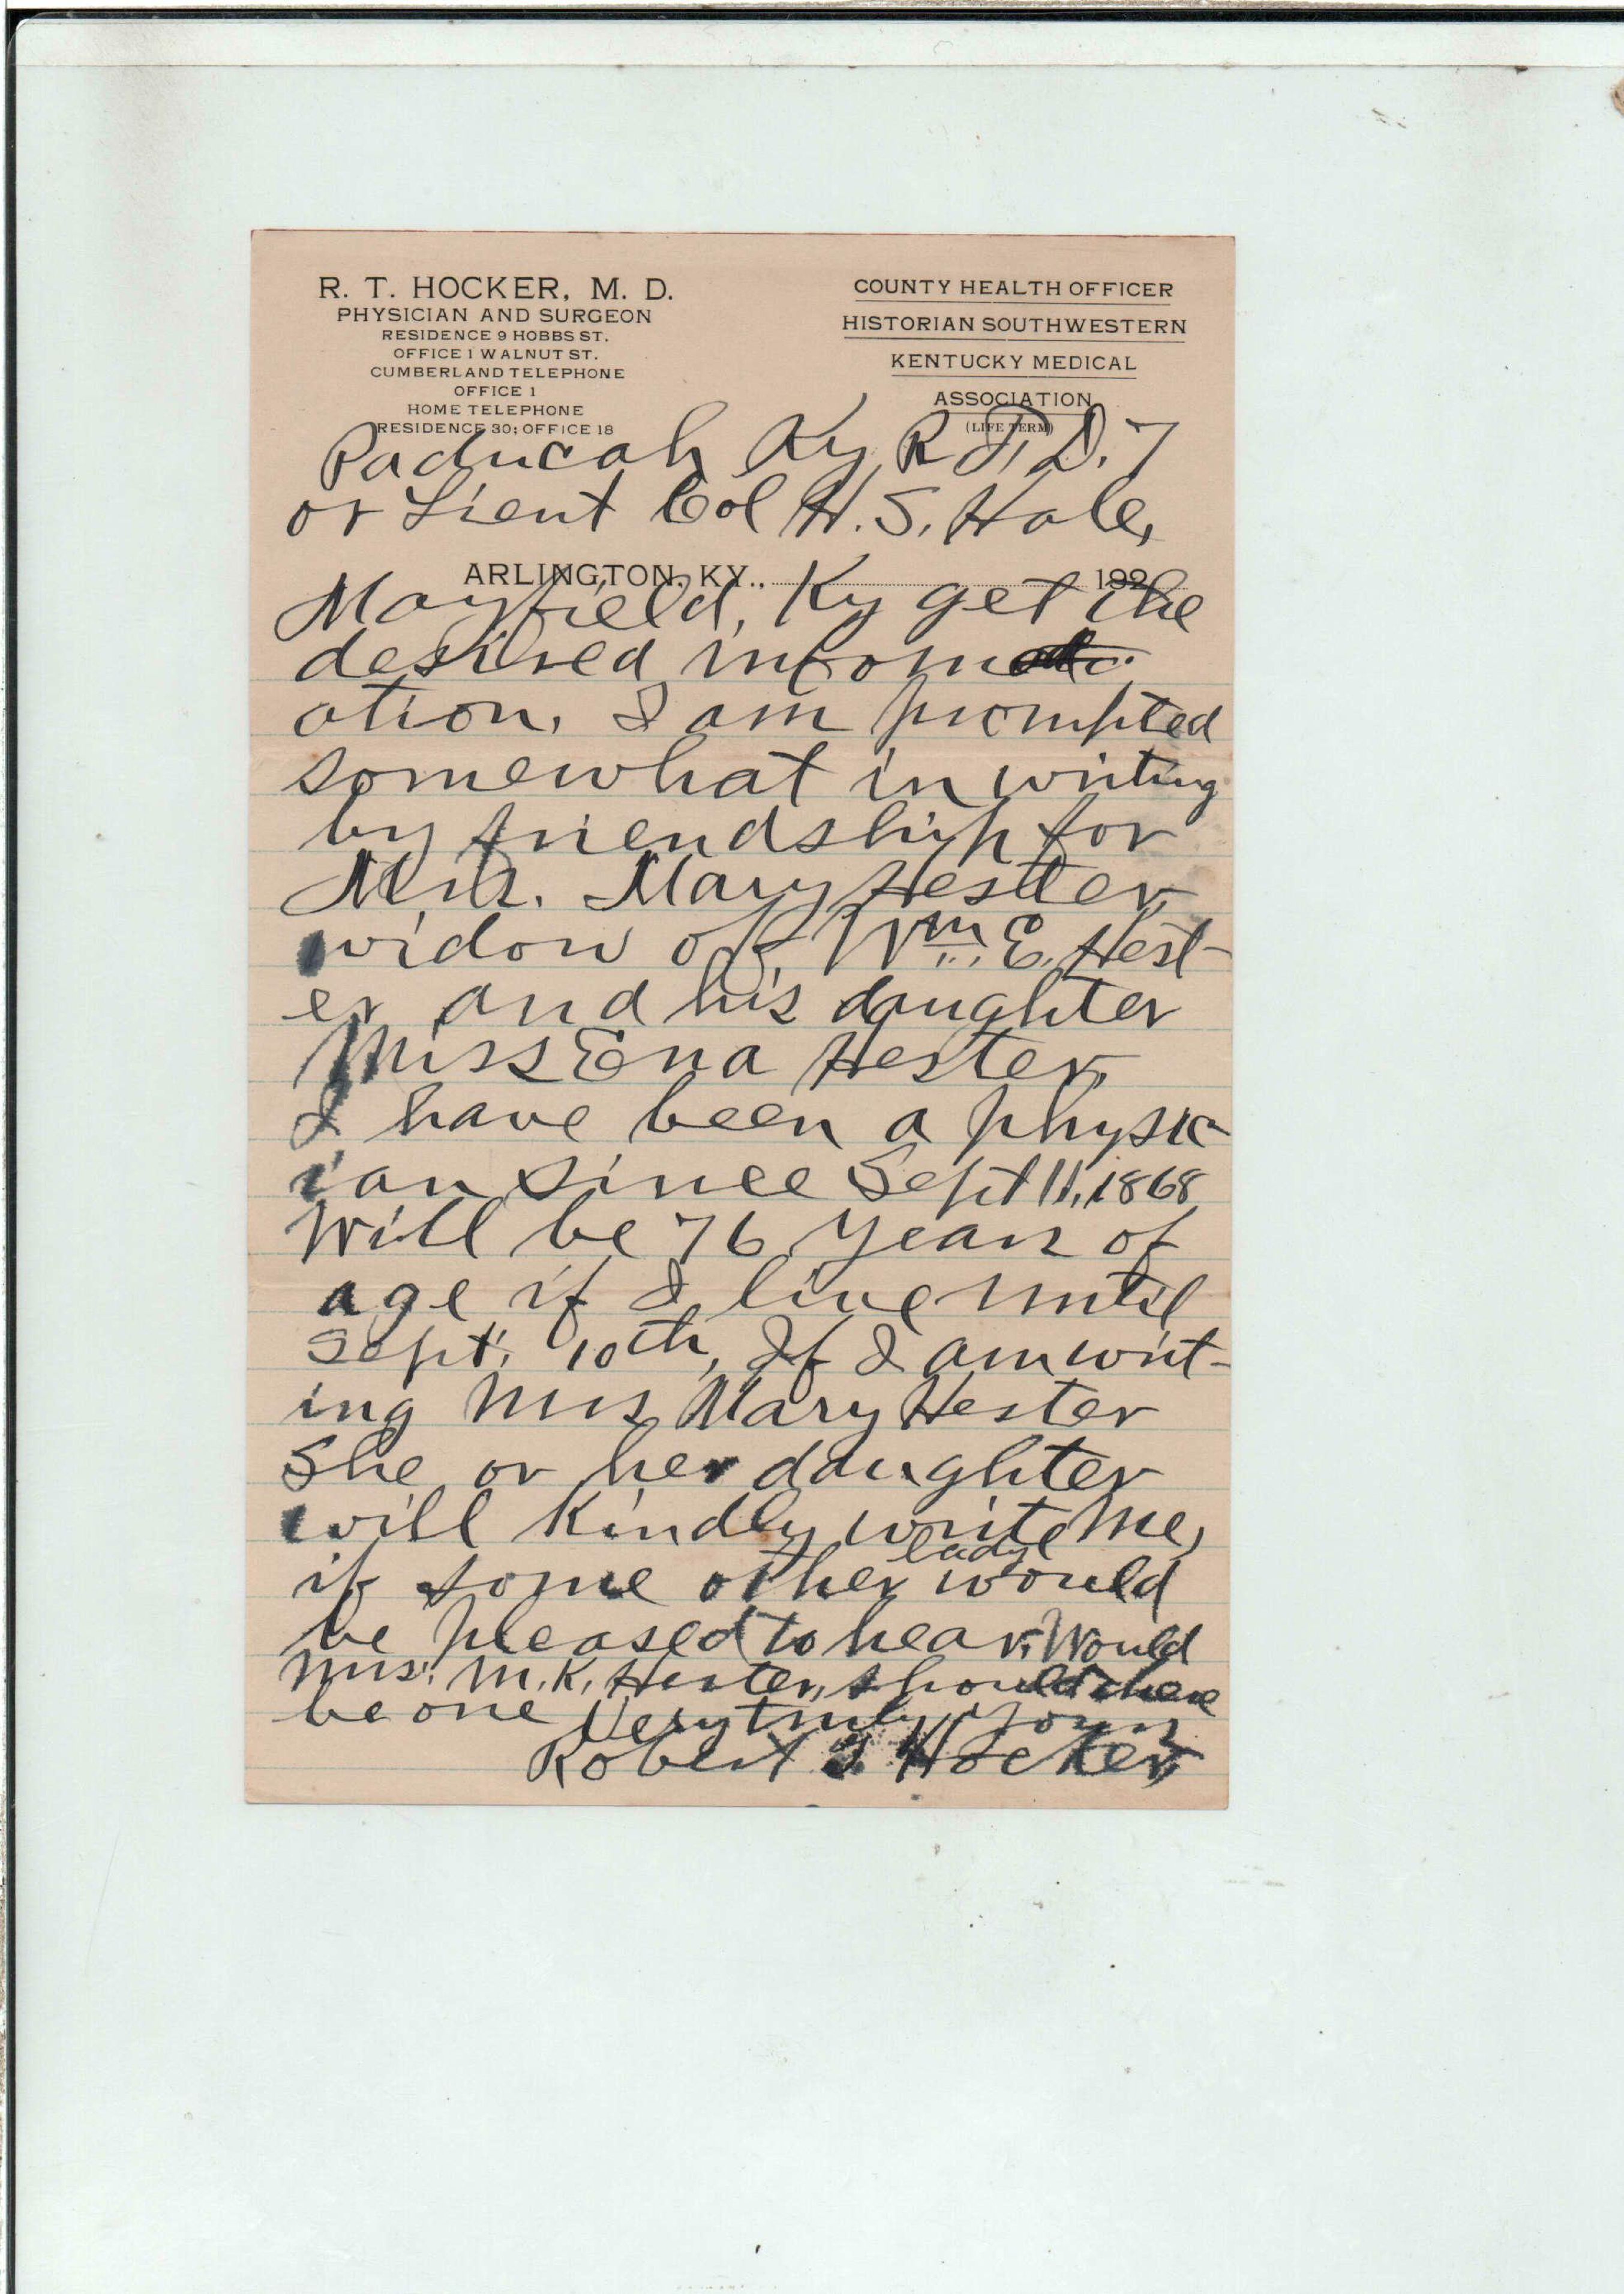 R. T. HOCKER, M. D.
PHYSICIAN AND SURGEON
RESIDENCE 9 HOBBS ST.
OFFICE 1 WALNUT ST.
CUMBERLAND TELEPHONE
OFFICE 1
HOME TELEPHONE
RESIDENCE 30; OFFICE 18
COUNTY HEALTH OFFICER
HISTORIAN SOUTHWESTERN
KENTUCKY MEDICAL
ASSOCIATION
(LIFE TERM)
Paducah Ky R.F.D. 7
or Lieut Col H. S. Hale,
ARLINGTON, KY., 192
Mayfield, Ky get the
desired infom
ation. I am prompted
somewhat in writing
by friendship for
Mrs. Mary Hester
widow of Wm. E. Hest-
er and his daughter
Miss Ena Hester.
I have been a physic-
ian since Sept 11, 1868
Will be 76 years of
age if I live until
Sept. 10th, If I am writ-
ing Mrs Mary Hester
She or her daughter
will kindly write me,
if some other lady would
be pleased to hear. Would
Mrs. M. K. Hester, should there
be one Very truly yours
Robert T. Hocker